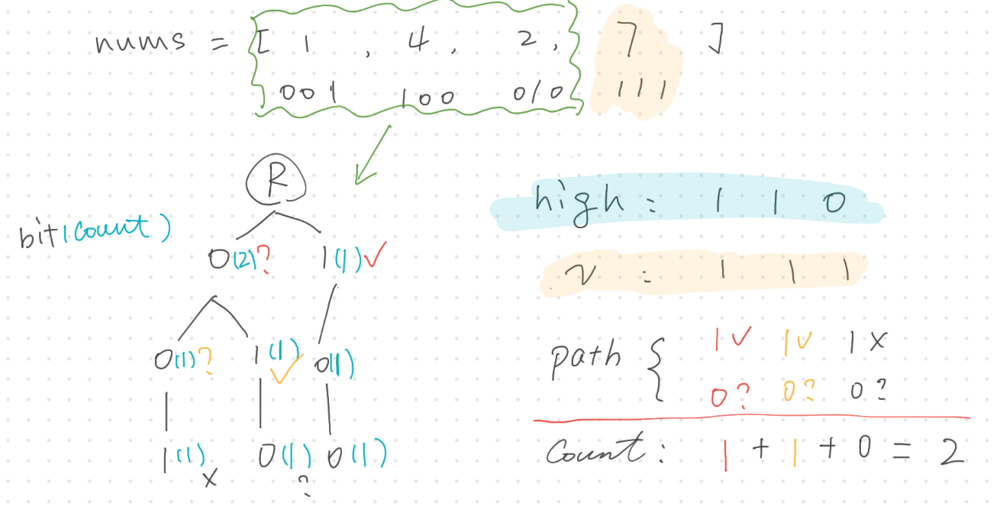 nums = [ 1 , 4 , 2 , 7 ]
001 100 010 111
R
high : 1 1 0
bit(count)
0(2)? 1(1)✓
v : 1 1 1
0(1)? 1(1)✓ 0(1)
path { 1✓ 1✓ 1×
0? 0? 0?
1(1)× 0(1)? 0(1)
Count : 1 + 1 + 0 = 2